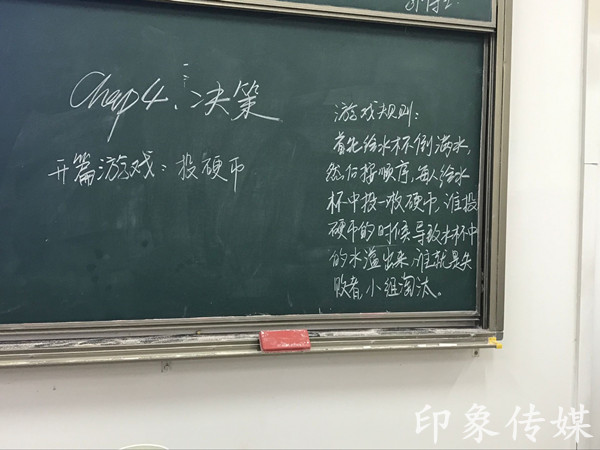 Chap 4. 决策
开篇游戏：投硬币
游戏规则：
首先给水杯倒满水，
然后按顺序，每人给水
杯中投一枚硬币，谁投
硬币的时候导致水杯中
的水溢出来，谁就是失
败者，小组淘汰。
印象传媒